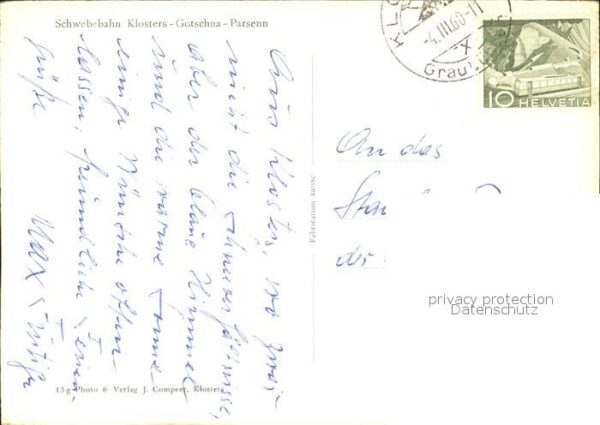 Schwebebahn Klosters - Gotschna - Parsenn
Aus Klosters, wo zwar
nicht die Schneeverhältnisse,
aber der blaue Himmel
und die warme Sonne
einige Wünsche offen-
lassen, freundliche Ferien-
grüße
Max
Fabrication suisse
13 g Photo & Verlag J. Compeer, Klosters
-4.III.60-11
X
Graub
10 HELVETIA
An das
der
privacy protection
Datenschutz